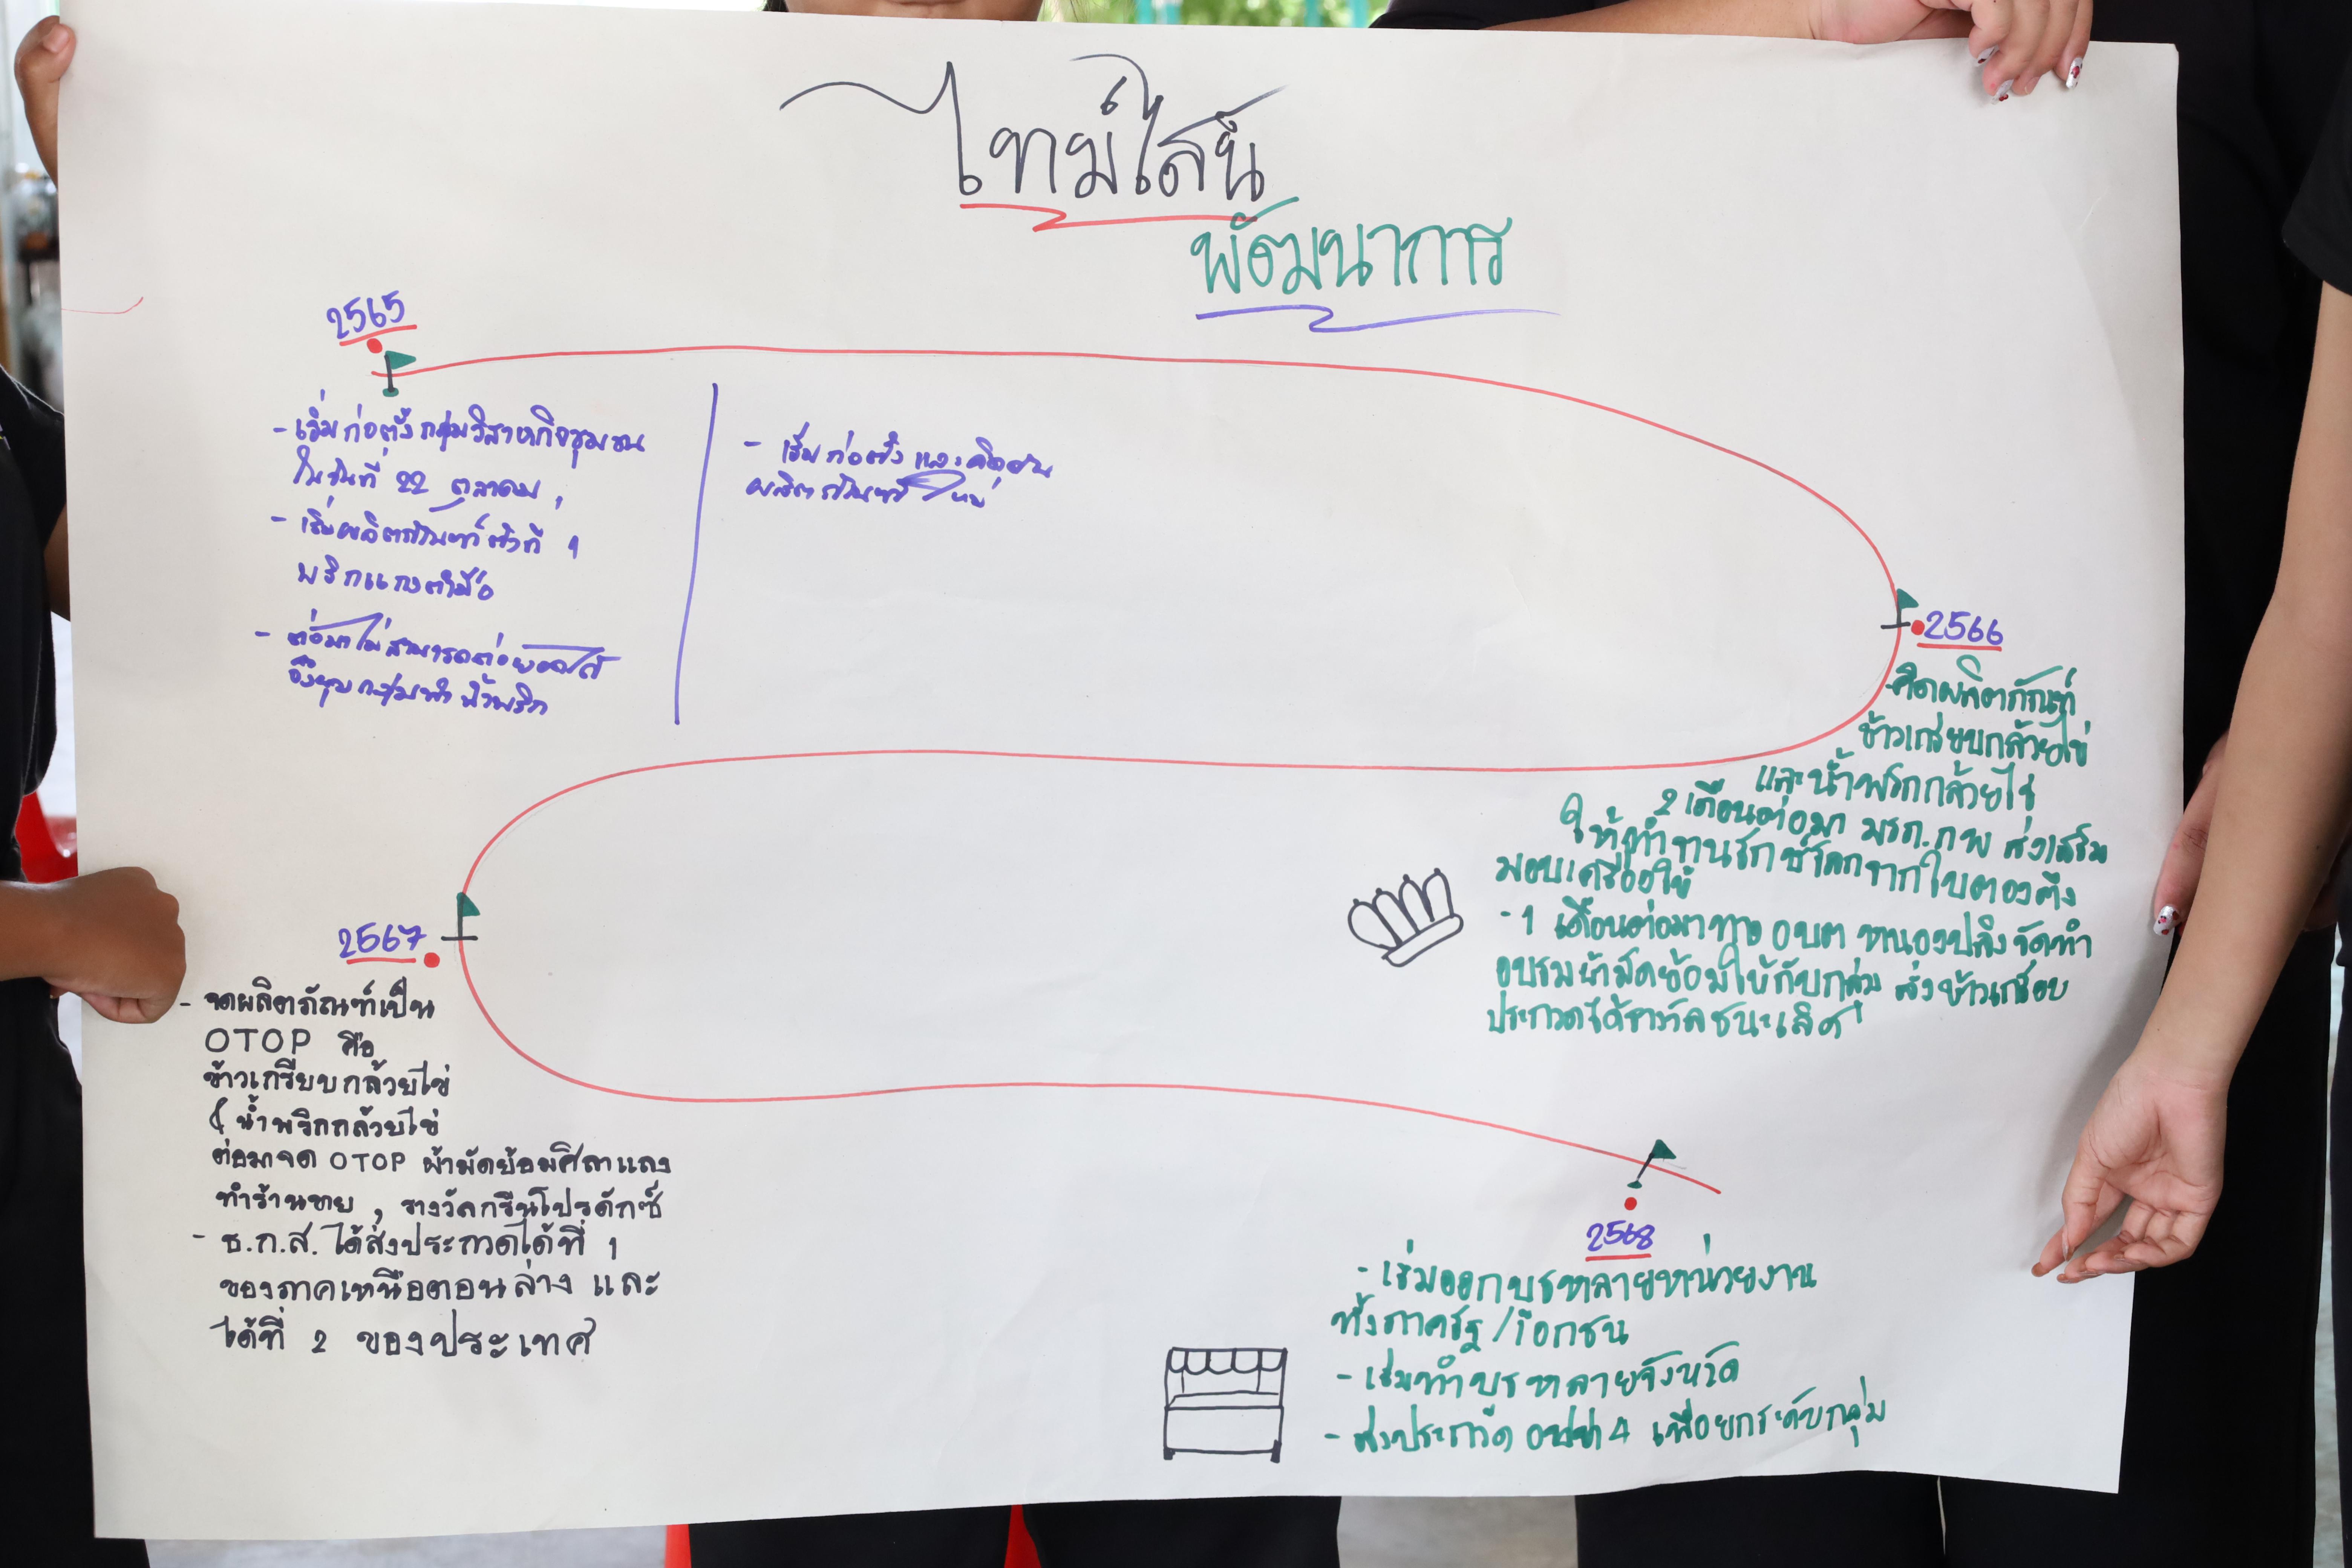 ไทม์ไลน์
พัฒนาการ
2565
- เริ่มก่อตั้งกลุ่มวิสาหกิจชุมชน
ในวันที่ 22 ตุลาคม
- เริ่มผลิตภัณฑ์ตัวที่ 1
พริกแกงตำมือ
- ต่อมาไม่สามารถต่อยอดได้
จึงยุบกลุ่มทำน้ำพริก
- เริ่มก่อตั้ง และคิดค้น
ผลิตภัณฑ์ใหม่
2566
คิดผลิตภัณฑ์
ข้าวเกรียบกล้วยไข่
และน้ำพริกกล้วยไข่
2 เดือนต่อมา มรภ.กพ ส่งเสริม
ให้ทำจานรักษ์โลกจากใบตองตึง
มอบเครื่องให้
- 1 เดือนต่อมาทาง อบต หนองปลิง จัดทำ
อบรมผ้ามัดย้อมให้กับกลุ่ม ส่งข้าวเกรียบ
ประกวดได้รางวัลชนะเลิศ
2567
- จดผลิตภัณฑ์เป็น
OTOP คือ
ข้าวเกรียบกล้วยไข่
& น้ำพริกกล้วยไข่
ต่อมาจด OTOP ผ้ามัดย้อมศิลาแลง
ทำร้านขาย , รางวัลกรีนโปรดักซ์
- ธ.ก.ส. ได้ส่งประกวดได้ที่ 1
ของภาคเหนือตอนล่าง และ
ได้ที่ 2 ของประเทศ
2568
- เริ่มออกบูธหลายหน่วยงาน
ทั้งภาครัฐ/เอกชน
- เริ่มทำบูธหลายจังหวัด
- ส่งประกวด 4 เพื่อยกระดับกลุ่ม